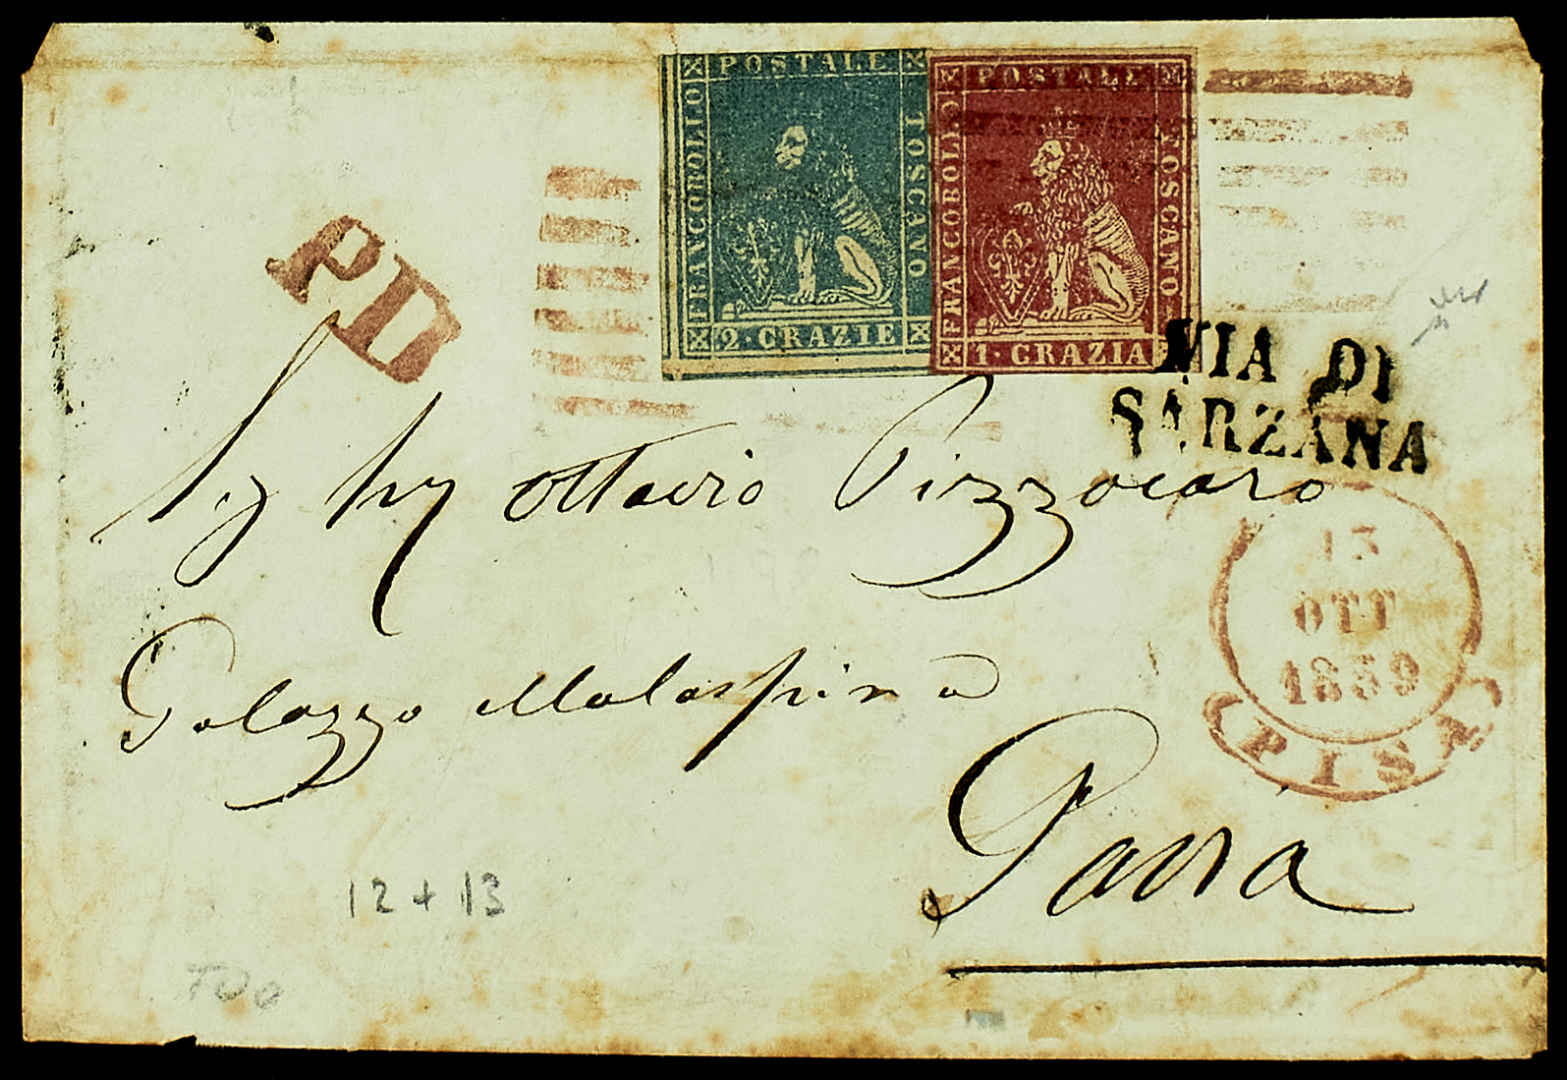 POSTALE
FRANCOBOLLO
TOSCANO
2·CRAZIE
POSTALE
FRANCOBOLLO
TOSCANO
1·CRAZIA
PD
VIA DI
SARZANA
Sig Ottavio Pizzocaro
13
OTT
1859
PISA
Palazzo Malaspina
Pavia
12 + 13